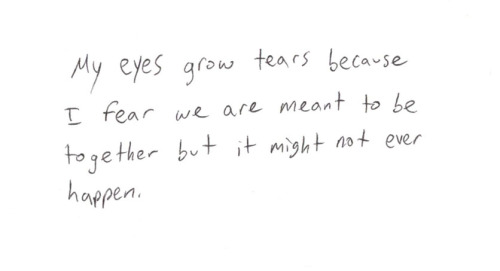 My eyes grow tears because
I fear we are meant to be
together but it might not ever
happen.